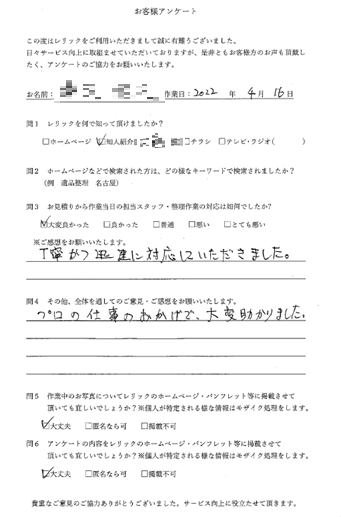 お客様アンケート
この度はレリックをご利用いただきまして誠に有難うございました。
日々サービス向上に取組ませていただいておりますが、是非ともお客様方のお声も頂戴し
たく、アンケートのご協力をお願いいたします。
お名前: 作業日:2022 年 4月 16日
問1 レリックを何で知って頂けましたか?
□ホームページ ☑知人紹介 □チラシ □テレビ・ラジオ( )
問2 ホームページなどで検索された方は、どの様なキーワードで検索されましたか?
(例 遺品整理 名古屋)
問3 お見積りから作業当日の担当スタッフ・整理作業の対応は如何でしたか?
☑大変良かった □良かった □普通 □悪い □とても悪い
※ご感想をお願いいたします。
丁寧かつ迅速に対応していただきました。
問4 その他、全体を通してのご意見・ご感想をお願いいたします。
プロの仕事のおかげで、大変助かりました。
問5 作業中のお写真についてレリックのホームページ・パンフレット等に掲載させて
頂いても宜しいでしょうか?※個人が特定される様な情報はモザイク処理をします。
☑大丈夫 □匿名なら可 □掲載不可
問6 アンケートの内容をレリックのホームページ・パンフレット等に掲載させて
頂いても宜しいでしょうか?※個人が特定される様な情報はモザイク処理をします。
☑大丈夫 □匿名なら可 □掲載不可
貴重なご意見のご協力ありがとうございました。サービス向上に役立たせて頂きます。